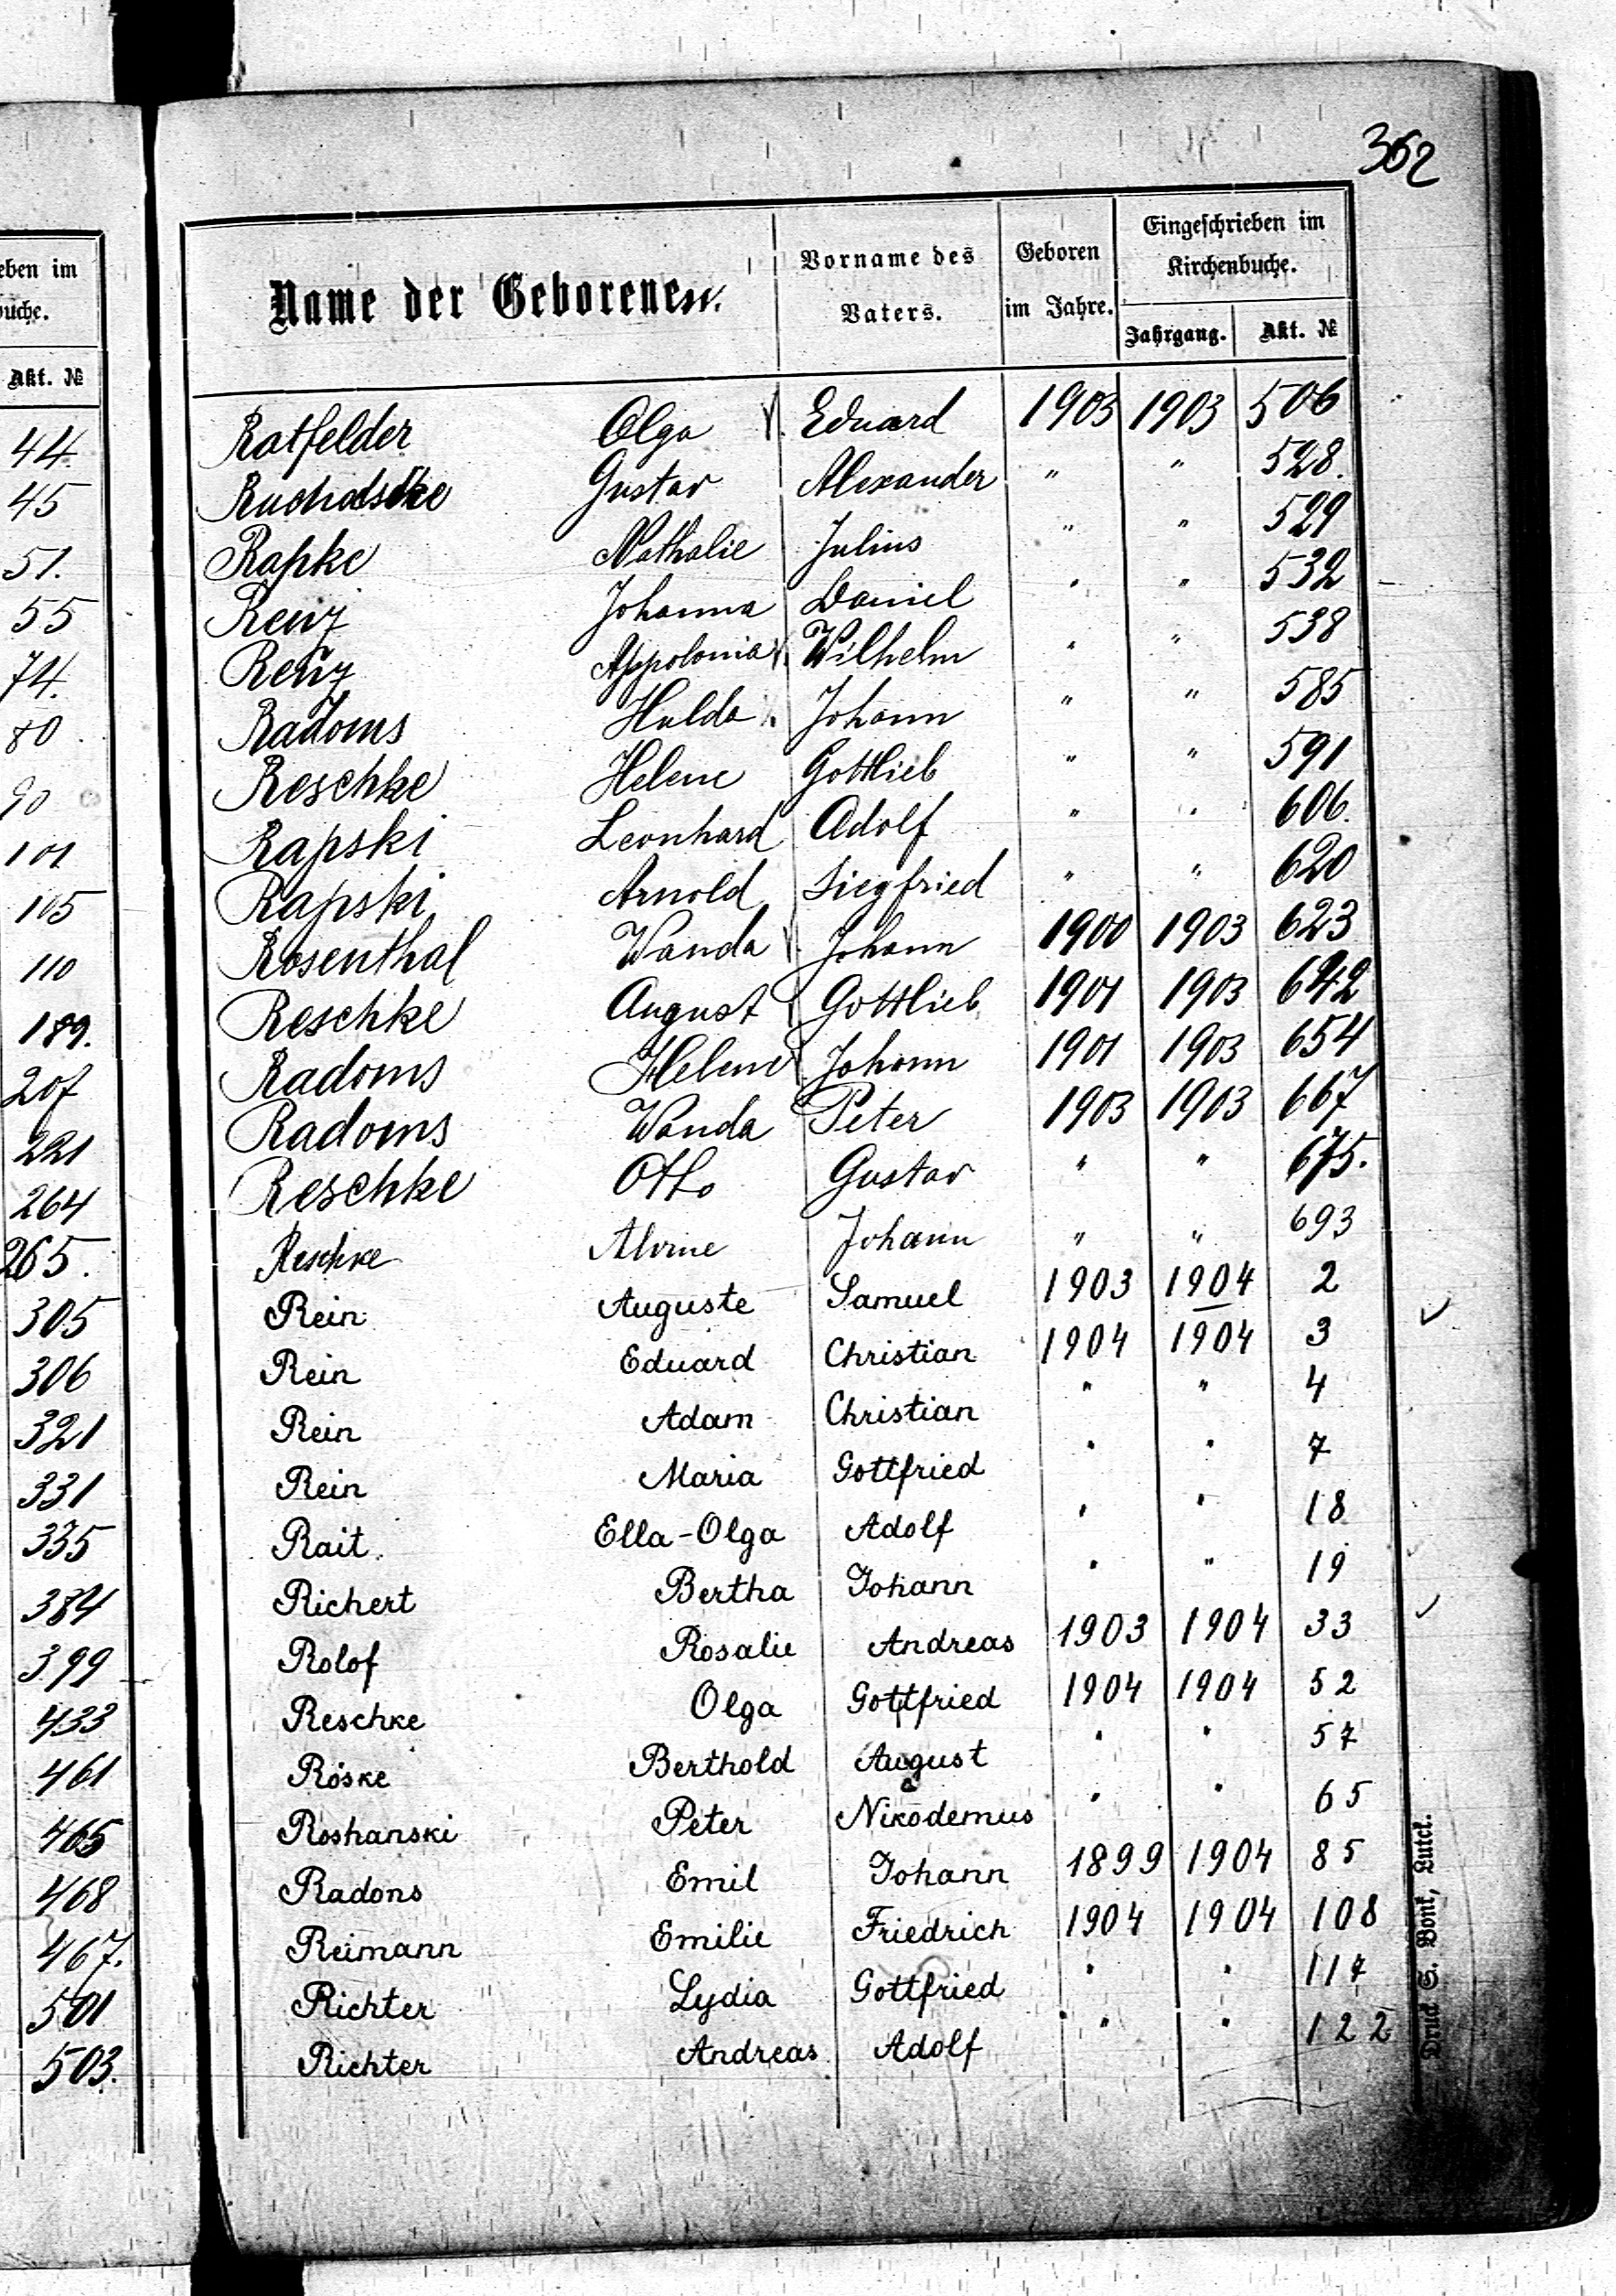 362
eben im
buche.
Akt. №
44.
45
51.
55
74.
80
90
101
105
110
189.
207
221
264
265.
305
306
321
331
335
384
399
433
461
465
468
467.
501
503.
Name der Geborenen. Vorname des Vaters. Geboren im Jahre. Eingeschrieben im Kirchenbuche.
Jahrgang. Akt. №
Ratfelder Olga Eduard 1903 1903 506
Gustav Alexander " " 528.
Rapke Nathalie Julius " " 529
Renz Johanna Daniel " " 532
Renz Appolonia Wilhelm " " 538
Radoms Hulda Johann " " 585
Reschke Helene Gottlieb " " 591
Rapski Leonhard Adolf " " 606.
Rapski Arnold Siegfried " " 620
Rosenthal Wanda Johann 1900 1903 623
Reschke August Gottlieb 1901 1903 642
Radoms Helene Johann 1901 1903 654
Radoms Wanda Peter 1903 1903 667
Reschke Otto Gustav " " 675.
Reschke Alvine Johann " " 693
Rein Auguste Samuel 1903 1904 2
Rein Eduard Christian 1904 1904 3
Rein Adam Christian " " 4
Rein Maria Gottfried " " 7
Rait Ella-Olga Adolf " " 18
Richert Bertha Johann " " 19
Rolof Rosalie Andreas 1903 1904 33
Reschke Olga Gottfried 1904 1904 52
Röske Berthold August " " 57
Roshanski Peter Nikodemus " " 65
Radons Emil Johann 1899 1904 85
Reimann Emilie Friedrich 1904 1904 108
Richter Lydia Gottfried " " 117
Richter Andreas Adolf " " 122
Druck S. Bonk, Luck.